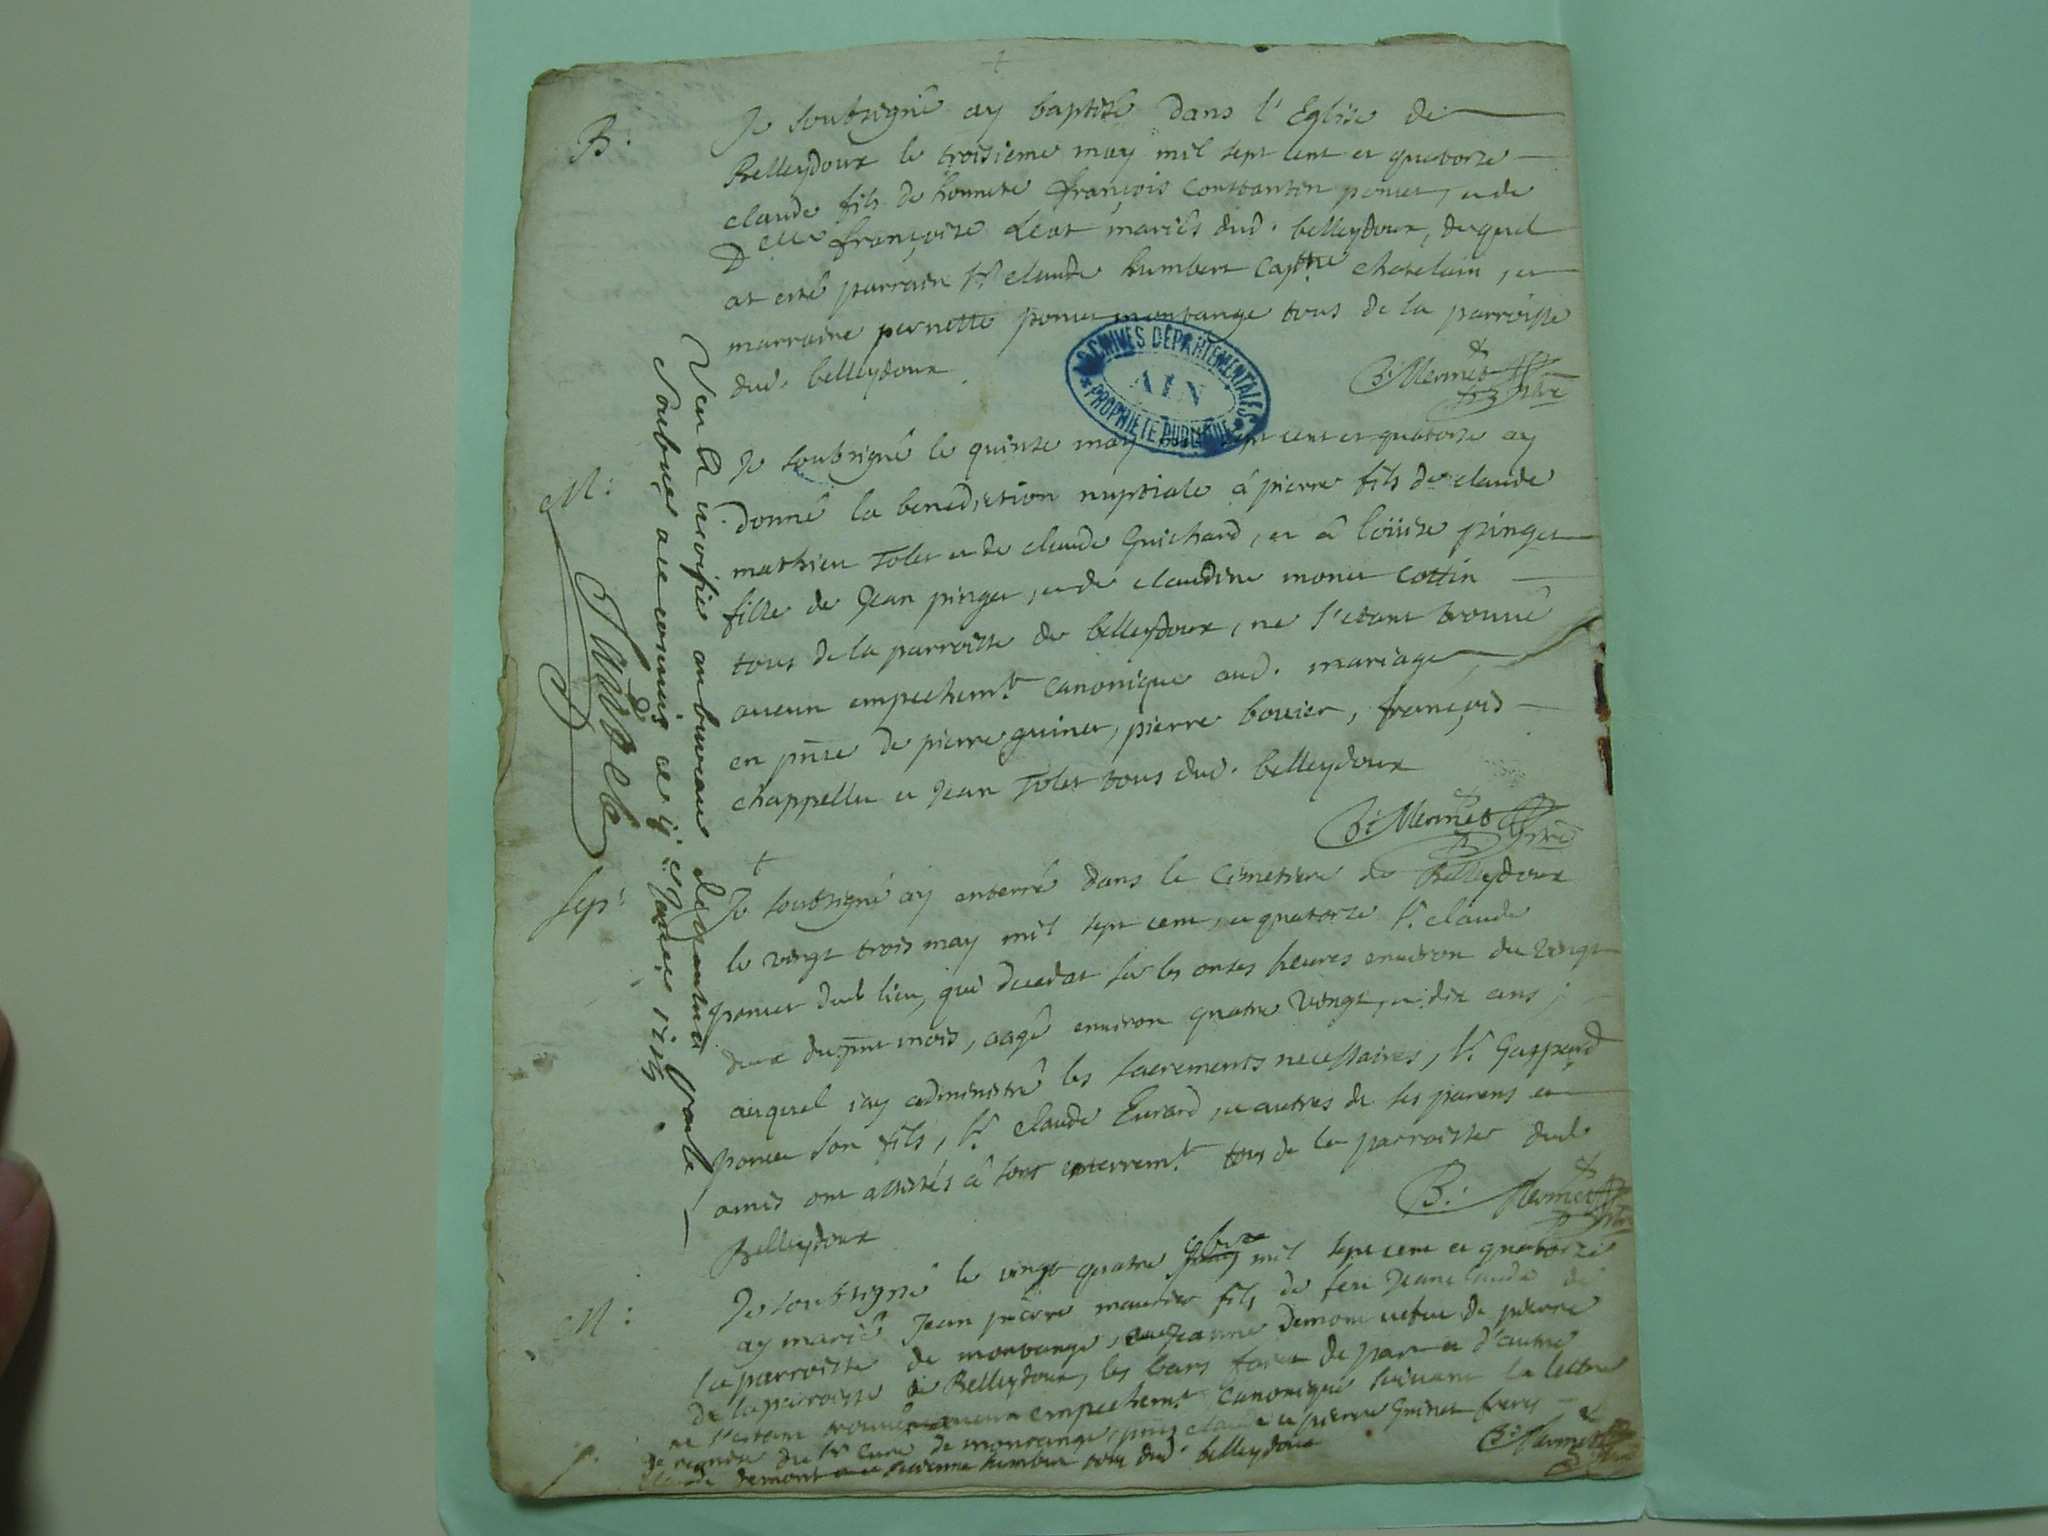 B:
Je soubsigné ay baptisé dans l'Eglise de
Belleydoux le troisieme may mil sept cent et quatorze
claude fils de honnete françois Constantin poncet, et de
Delle françoise Leat mariés dud. belleydoux, duquel
at esté parrain Sr. claude humbert chatelain, et
marraine pernette poncet montange tous de la parroisse
dud. belleydoux
B: Mermet ptre
ARCHIVES DÉPARTEMENTALES
AIN
* PROPRIÉTÉ PUBLIQUE *
M:
Je soubsigné le quinze may sept cent et quatorze ay
donné la benediction nuptiale à pierre fils de claude
mathieu Tolet et de claude Guichard, et à loüise pinget
fille de Jean pinget, et de claudine monet Cottin
tous de la parroisse de belleydoux, ne s'etant trouvé
aucun empechemt. canonique aud. mariage
en pnce de pierre guinet, pierre bouvier, françois
chappellu et Jean Tolet tous dud. belleydoux
B: Mermet ptre
Sep:
Je soubsigné ay enterré dans le Cimetiere de Belleydoux
le vingt trois may mil sept cent, et quatorze Sr. claude
poncet dud. lieu, qui decedat sur les onzes heures environ du vingt
deux du pnt mois, aagé environ quatre vingt, et dix ans;
auquel j'ay administré les sacrements necessaires, Sr. Gaspard
poncet son fils, Sr. claude Evrard, et autres de ses parens et
amis ont assistés à son enterremt. tous de la parroisse dud.
Belleydoux
B: Mermet ptre
M:
Je soubsigné le vingt quatre mil sept cent et quatorze
ay marié Jean pierre maurier fils de feu Jean claude de
la parroisse de montange, et Jeanne Demont vefve de pierre
de la parroisse de Belleydoux, les bans de part et d'autre
ne s'etant trouvé aucun empechemt. canonique suivant la lettre
du Sr. Curé de montange, pnts claude et pierre Guinet freres
claude demont humbert tous dud. belleydoux
B: Mermet ptre
Veu & verifié au bureau
Soubsigné comis ce Janvier 1715